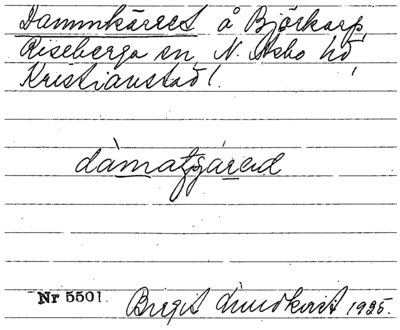 Dammkärret å Björkarp,
Riseberga sn, N. Åsbo hd,
Kristianstad l.
Nr 5501. Birgit Lindkvist 1925.